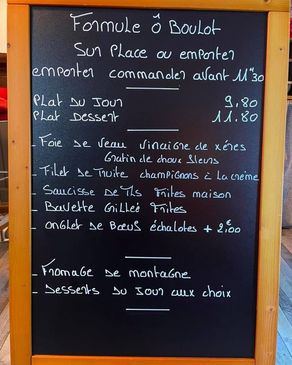 Formule Ô Boulot
Sur Place ou emporter
emporter commander avant 11"30
Plat du Jour 9,80
Plat Dessert 11.80
- Foie de veau vinaigre de xérès
Gratin de choux fleurs
- Filet de Truite champignons à la crème
- Saucisse de Tls Frites maison
- Bavette Grillée Frites
- onglet de Bœuf échalotes + 2,€00
- Fromage de montagne
- Desserts du Jour aux choix